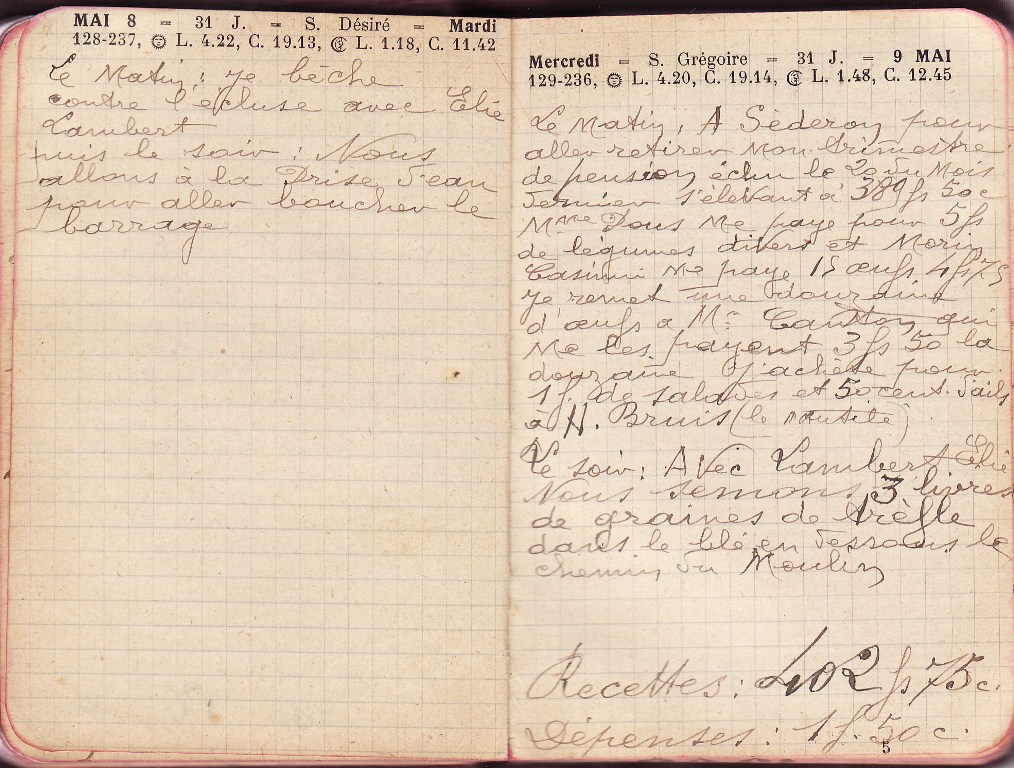 MAI 8 = 31 J. = S. Désiré = Mardi
128-237, L. 4.22, C. 19.13, L. 1.18, C. 11.42
Le Matin : Je bèche
contre l'écluse avec Elie
Lambert
puis le soir : Nous
allons à la Prise d'eau
pour aller boucher le
barrage
Mercredi = S. Grégoire = 31 J. = 9 MAI
129-236, L. 4.20, C. 19.14, L. 1.48, C. 12.45
Le Matin, A Séderon pour
aller retirer mon trimestre
de pension échu le 20 du Mois
dernier s'élevant à 389 fs 50 c
Mme Dous me paye pour 5 fs
de légumes divers et Morin
Casimir me paye 15 œufs 4 fs 75
Je remet une douzaine
d'œufs a Mr qui
me les payent 3 fs 50 la
douzaine J'achète pour
1 f. de salades et 50 cent. d'ails
à H. Bruis (le)
Le soir : Avec Lambert Elie
Nous semons 3 livres
de graines de trèfle
dans le blé en dessous le
chemin du Moulin
Recettes : 402 fs 75 c.
Dépenses : 1 f. 50 c.
5